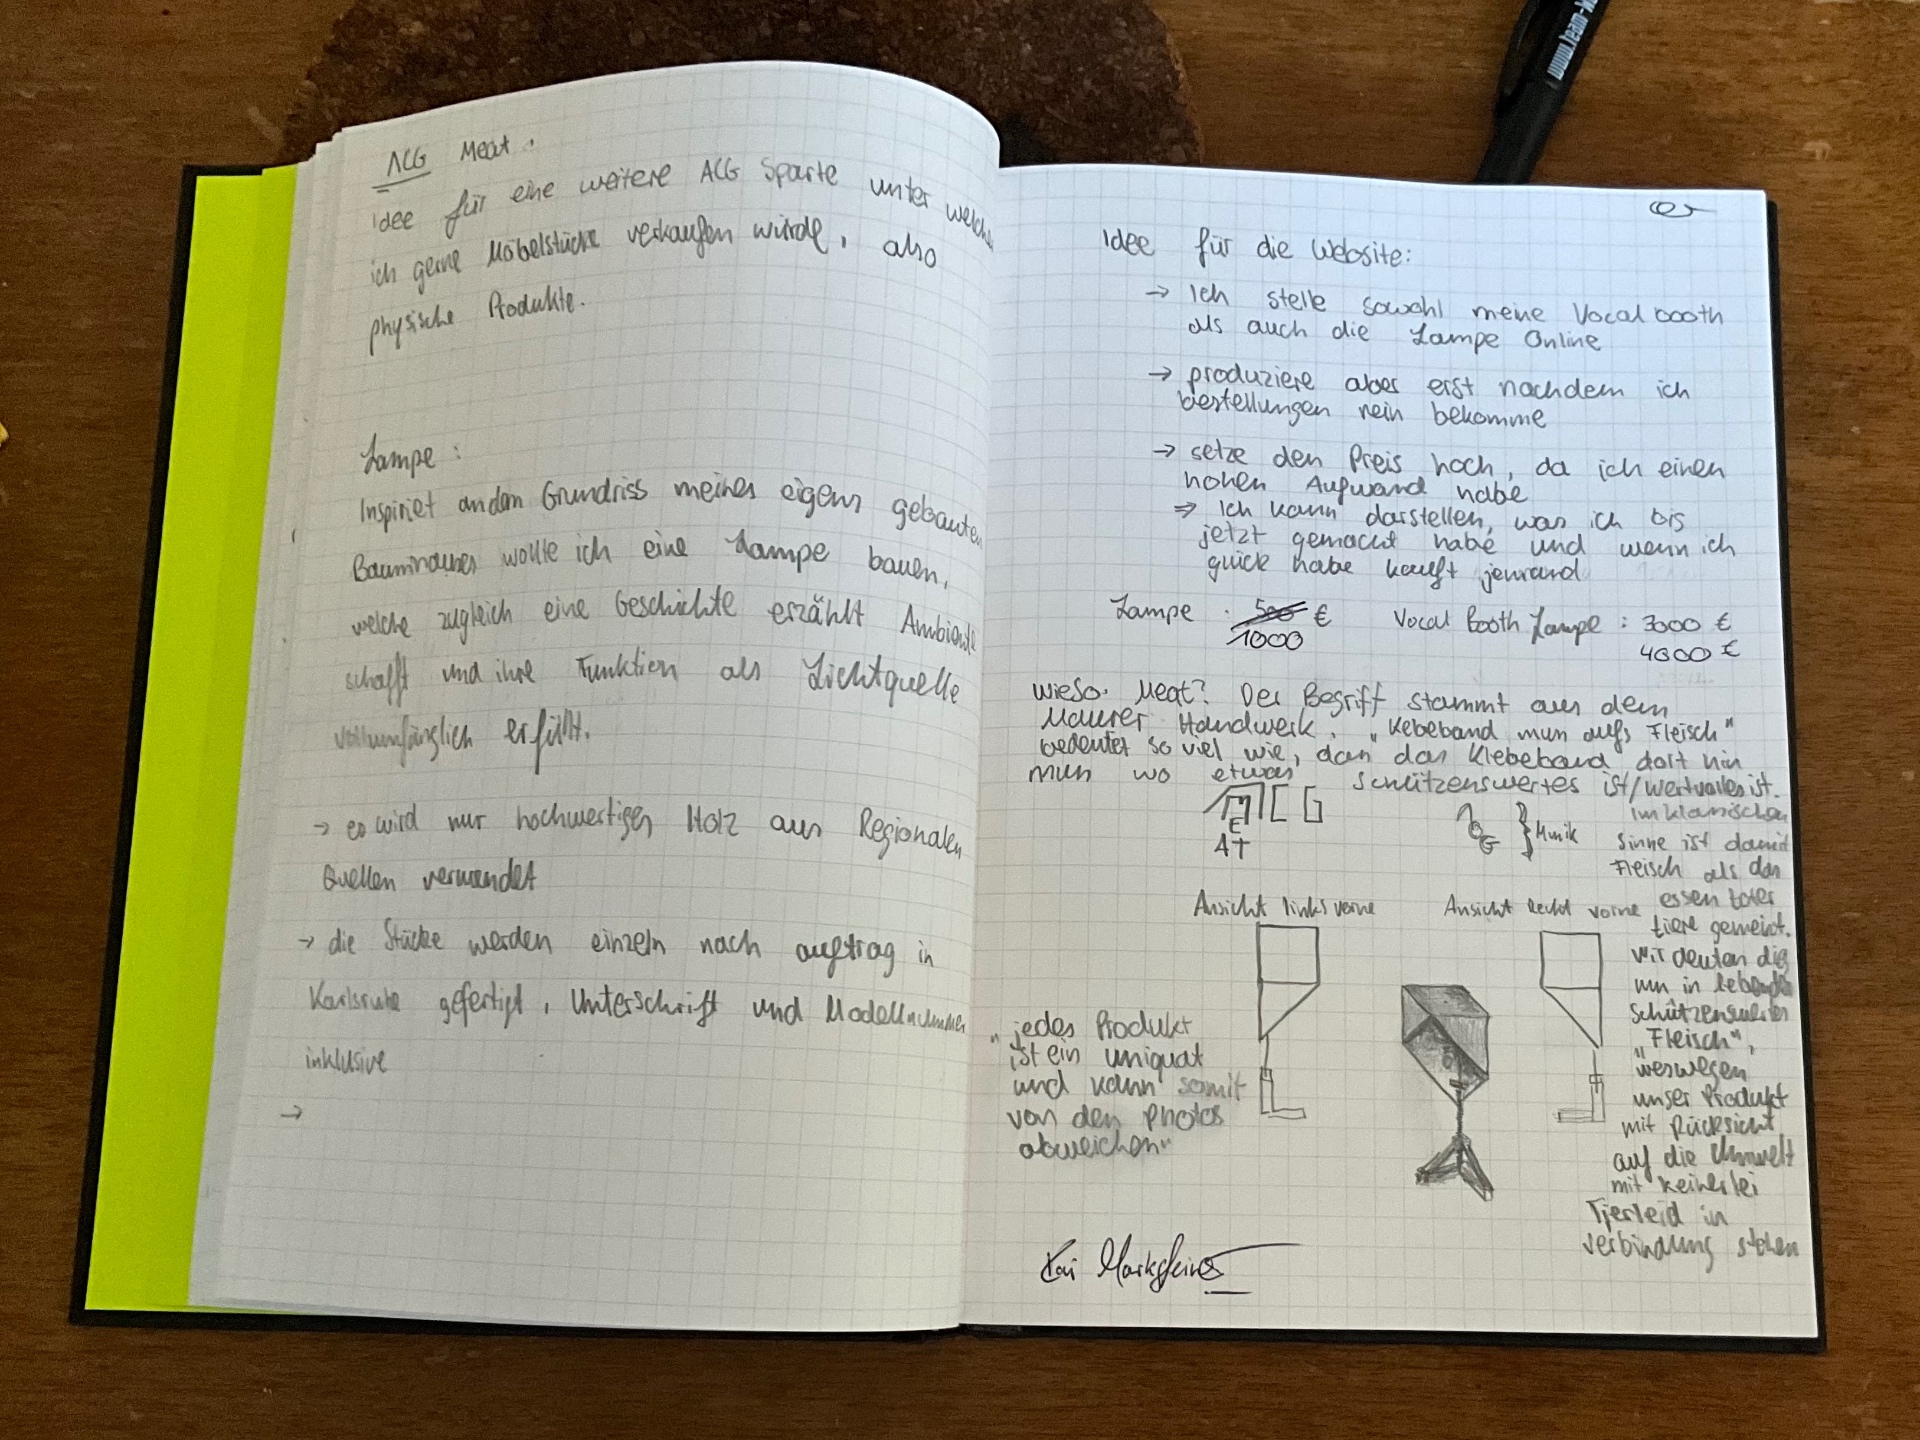 ACG Meat.
Idee für eine weitere ACG Sparte unter welche
ich gerne Möbelstücke verkaufen würde, also
physische Produkte.
Lampe:
Inspiriet an dem Grundriss meines eigens gebauten
wollte ich eine Lampe bauen,
welche zugleich eine Geschichte erzählt Ambiente
schafft und ihre Funktion als Lichtquelle
vollumfänglich erfüllt.
→ es wird nur hochwertiges Holz aus Regionalen
Quellen verwendet
→ die Stücke werden einzeln nach auftrag in
Karlsruhe gefertigt, Unterschrift und Modellnummer
inklusive
→
Idee für die Website:
→ Ich stelle sowohl meine Vocal booth
als auch die Lampe Online
→ produziere aber erst nachdem ich
bestellungen rein bekomme
→ setze den Preis hoch, da ich einen
hohen Aufwand habe
⇒ Ich kann darstellen, was ich bis
jetzt gemacht habe und wenn ich
glück habe kauft jemand
Lampe : 500 € Vocal Booth Lampe : 3000 €
1000 4000 €
Wieso Meat? Der Begriff stammt aus dem
Maurer Handwerk. „Kebeband muss aufs Fleisch"
bedeutet so viel wie, dass das Klebeband dort hin
muss wo etwas schützenswertes ist/wertvolles ist.
M C G
E
A T
A C G } Musik
Im klassischen
Sinne ist damit
Fleisch als das
essen toter
tiere gemeint.
Wir deuten dies
um in lebendes
schützenswertes
„Fleisch",
weswegen
unser Produkt
mit Rücksicht
auf die Umwelt
mit keinerlei
Tierleid in
verbindung stehen
Ansicht links vorne Ansicht Recht vorne
„jedes Produkt
ist ein uniquat
und kann somit
von den Photos
abweichen"
Kai
www.team-